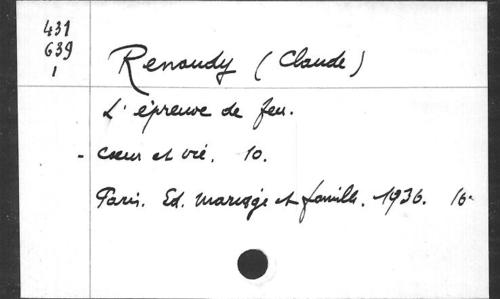 431
639
1
Renaudy (Claude)
L'épreuve de feu.
- Cœur et vie. 10.
Paris. Ed. mariage et famille. 1936. 16°